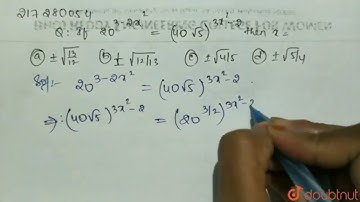 217280054
Q: If 20^{3-2x²} = (40√5)^{3x²-2} then x =
ⓐ ± √13/12 ⓑ ± √12/13 ⓒ ± √4/5 ⓓ ± √5/4
Sol:- 20^{3-2x²} = (40√5)^{3x²-2}.
⇒: (40√5)^{3x²-2} = (20^{3/2})^{3x²-2
doubtnut